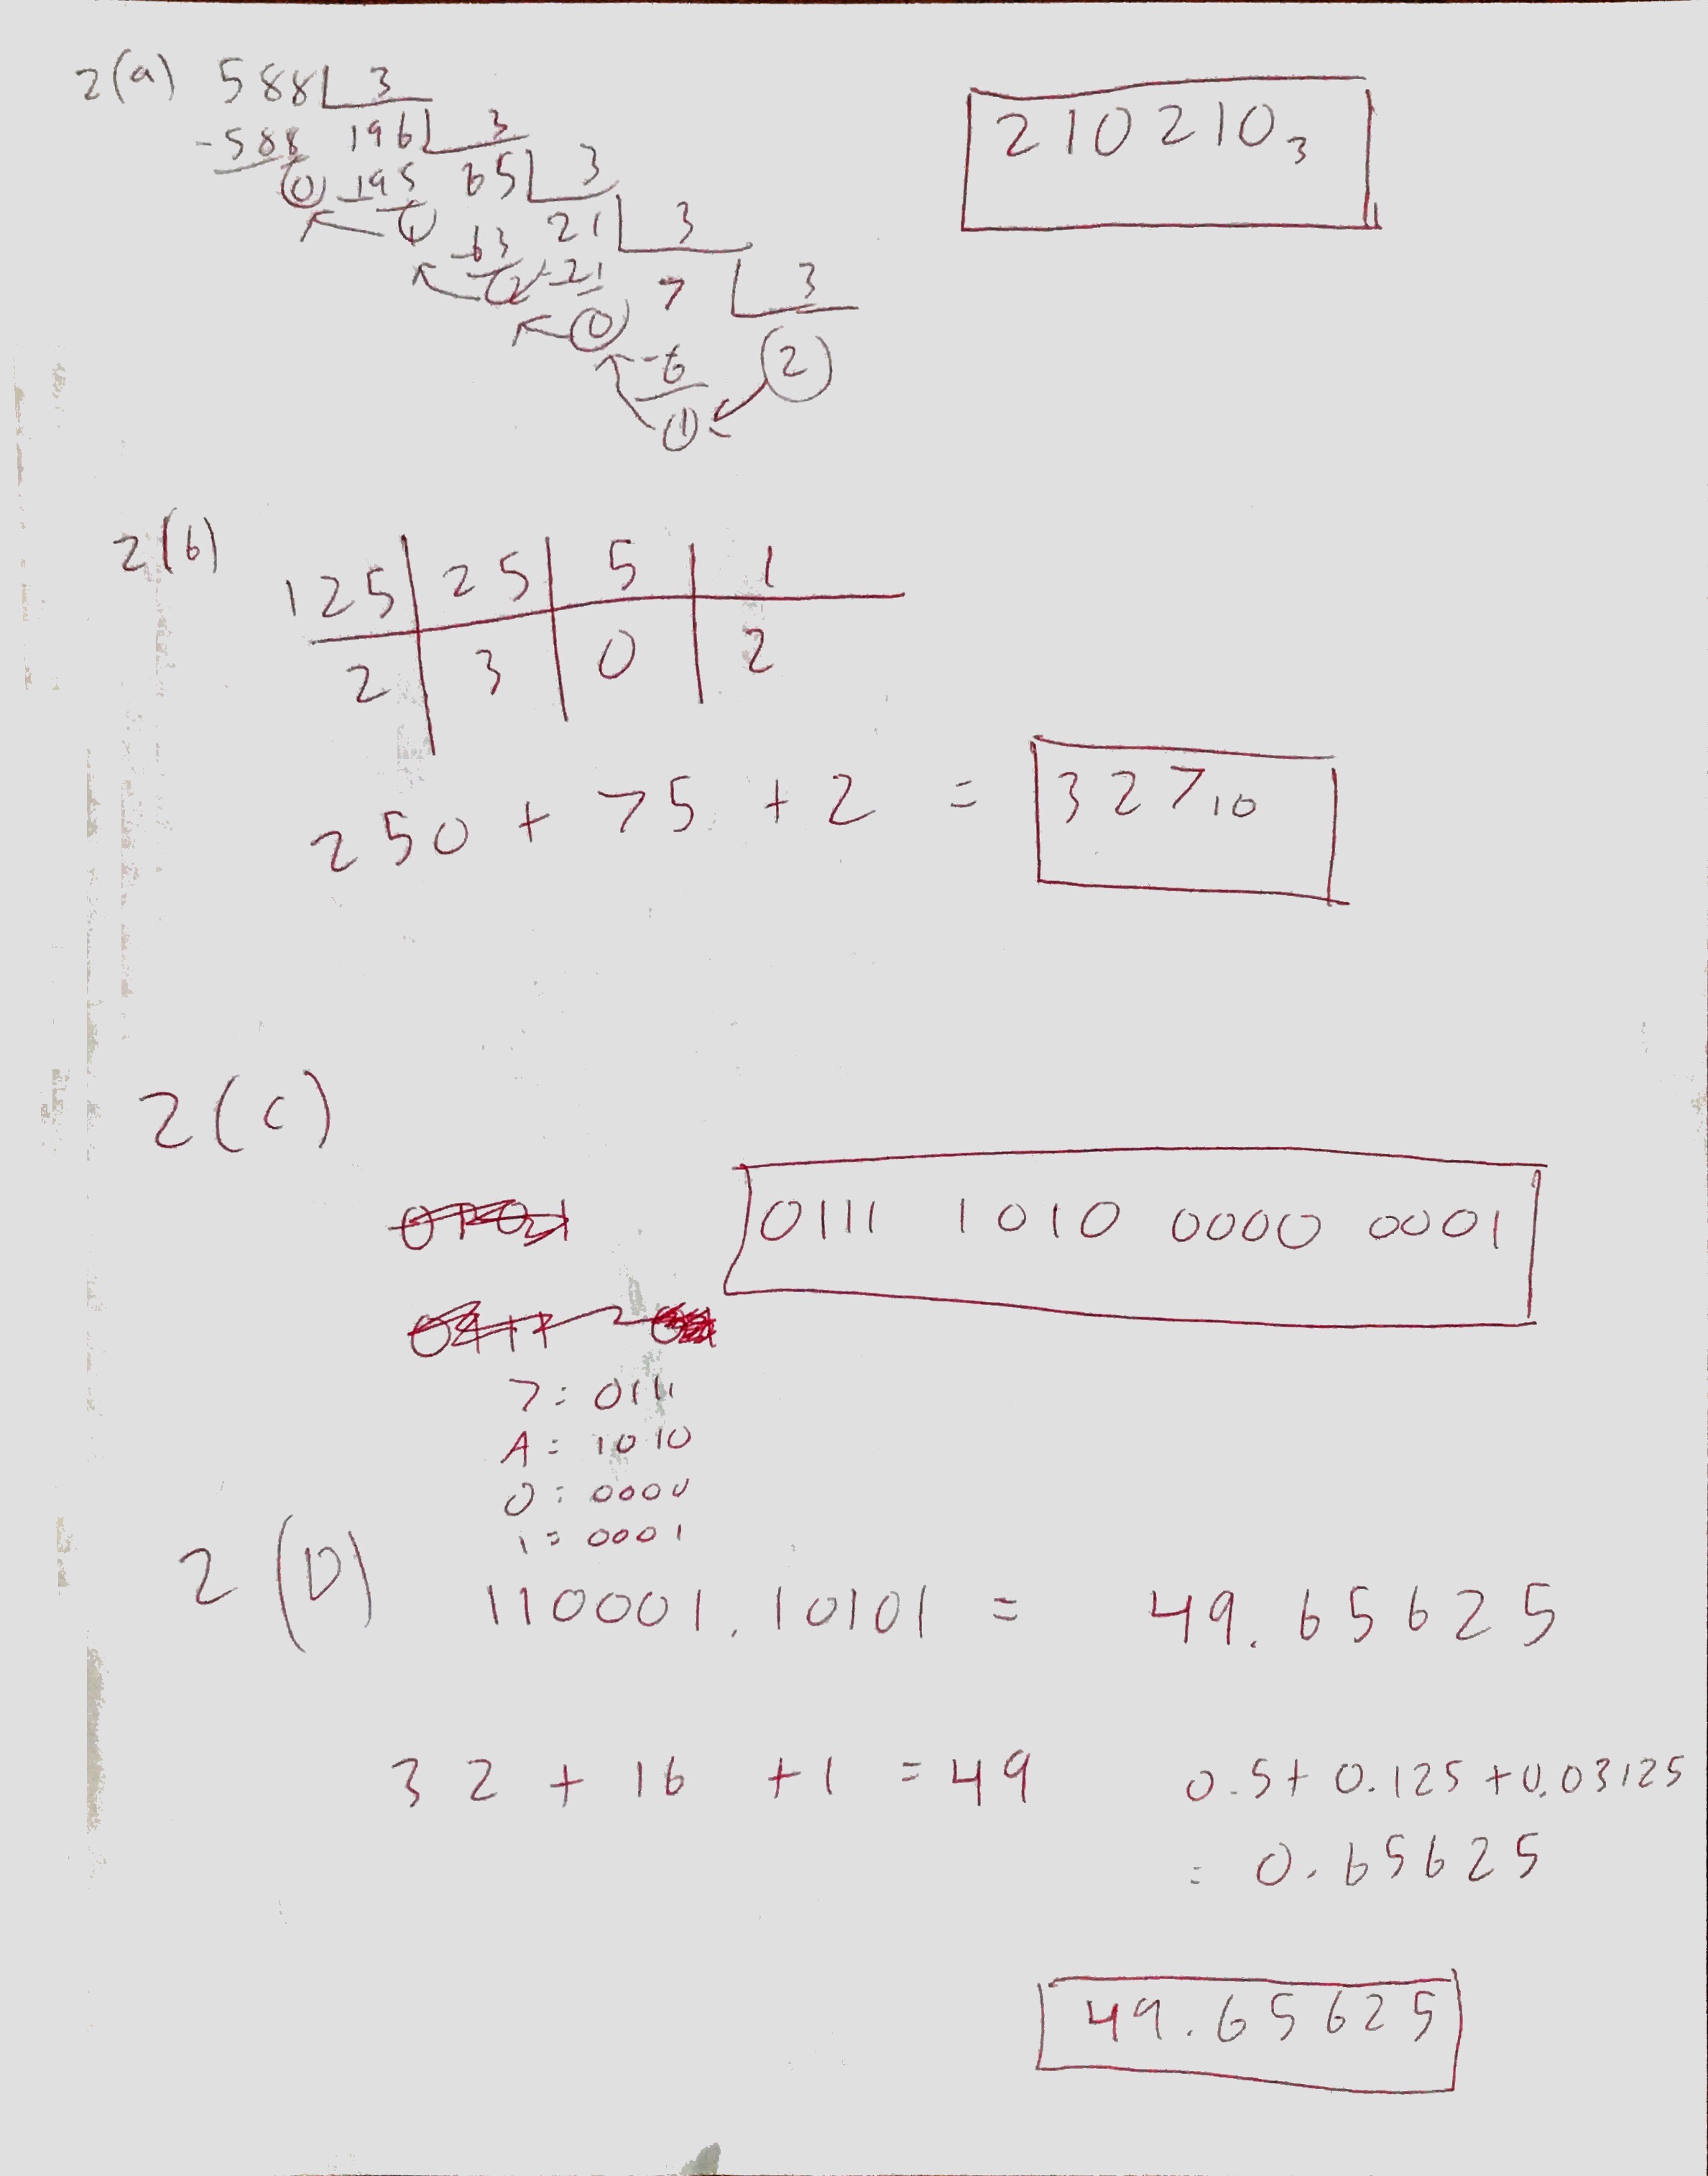 2(a) 588 3
-588 196 3
0 -195 65 3
1 -63 21 3
2 -21 7 3
0 -6 2
1
210210₃
2(b)
125 25 5 1
2 3 0 2
250 + 75 + 2 = 327₁₀
2(c)
0111 1010 0000 0001
7: 0111
A = 1010
0: 0000
1 = 0001
2(D) 110001.10101 = 49.65625
32 + 16 + 1 = 49 0.5 + 0.125 + 0.03125
= 0.65625
49.65625